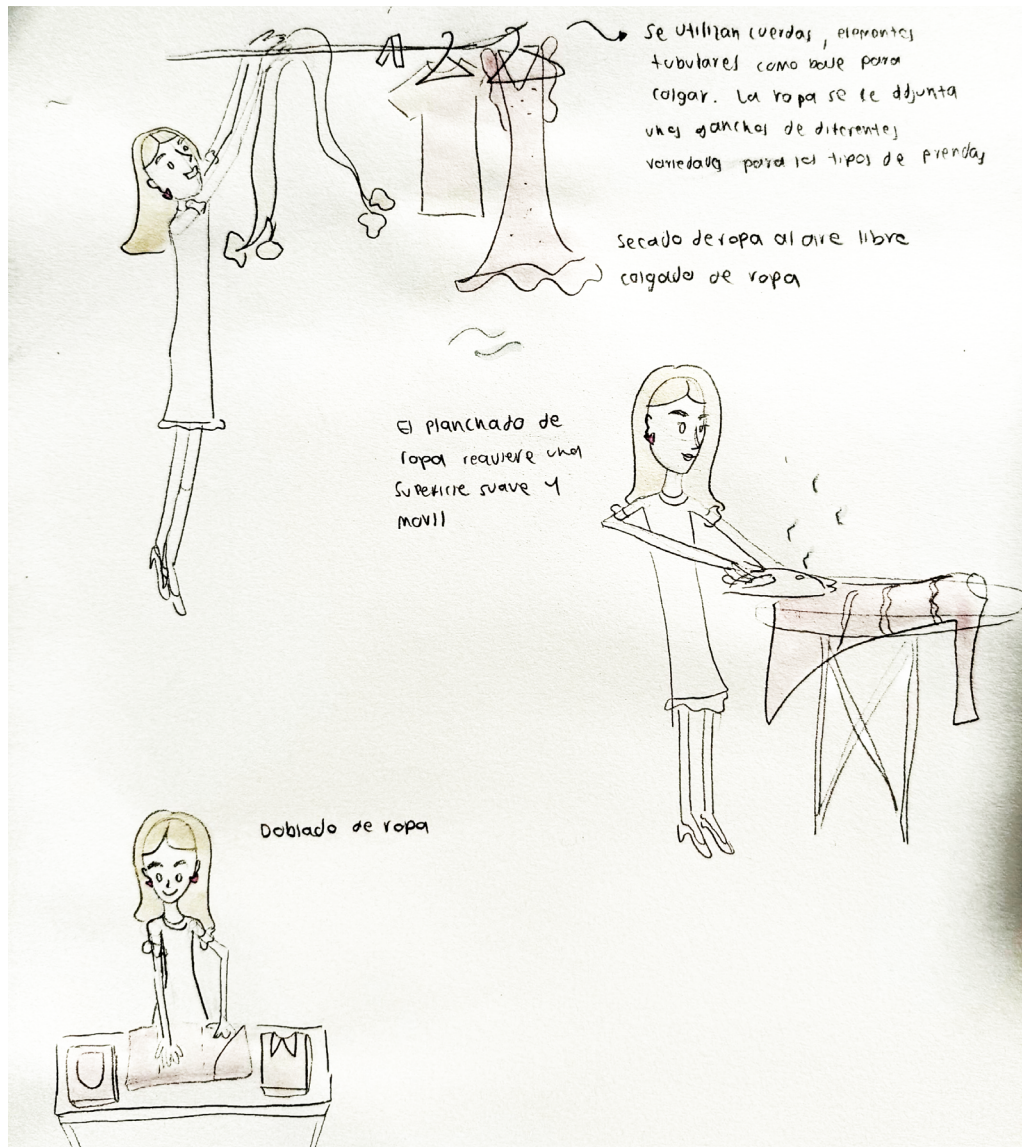 Se utilizan cuerdas, elementos
tubulares como base para
colgar. La ropa se le adjunta
unos ganchos de diferentes
variedades para los tipos de prendas
Secado de ropa al aire libre
colgado de ropa
El planchado de
ropa requiere una
superficie suave y
movil
Doblado de ropa